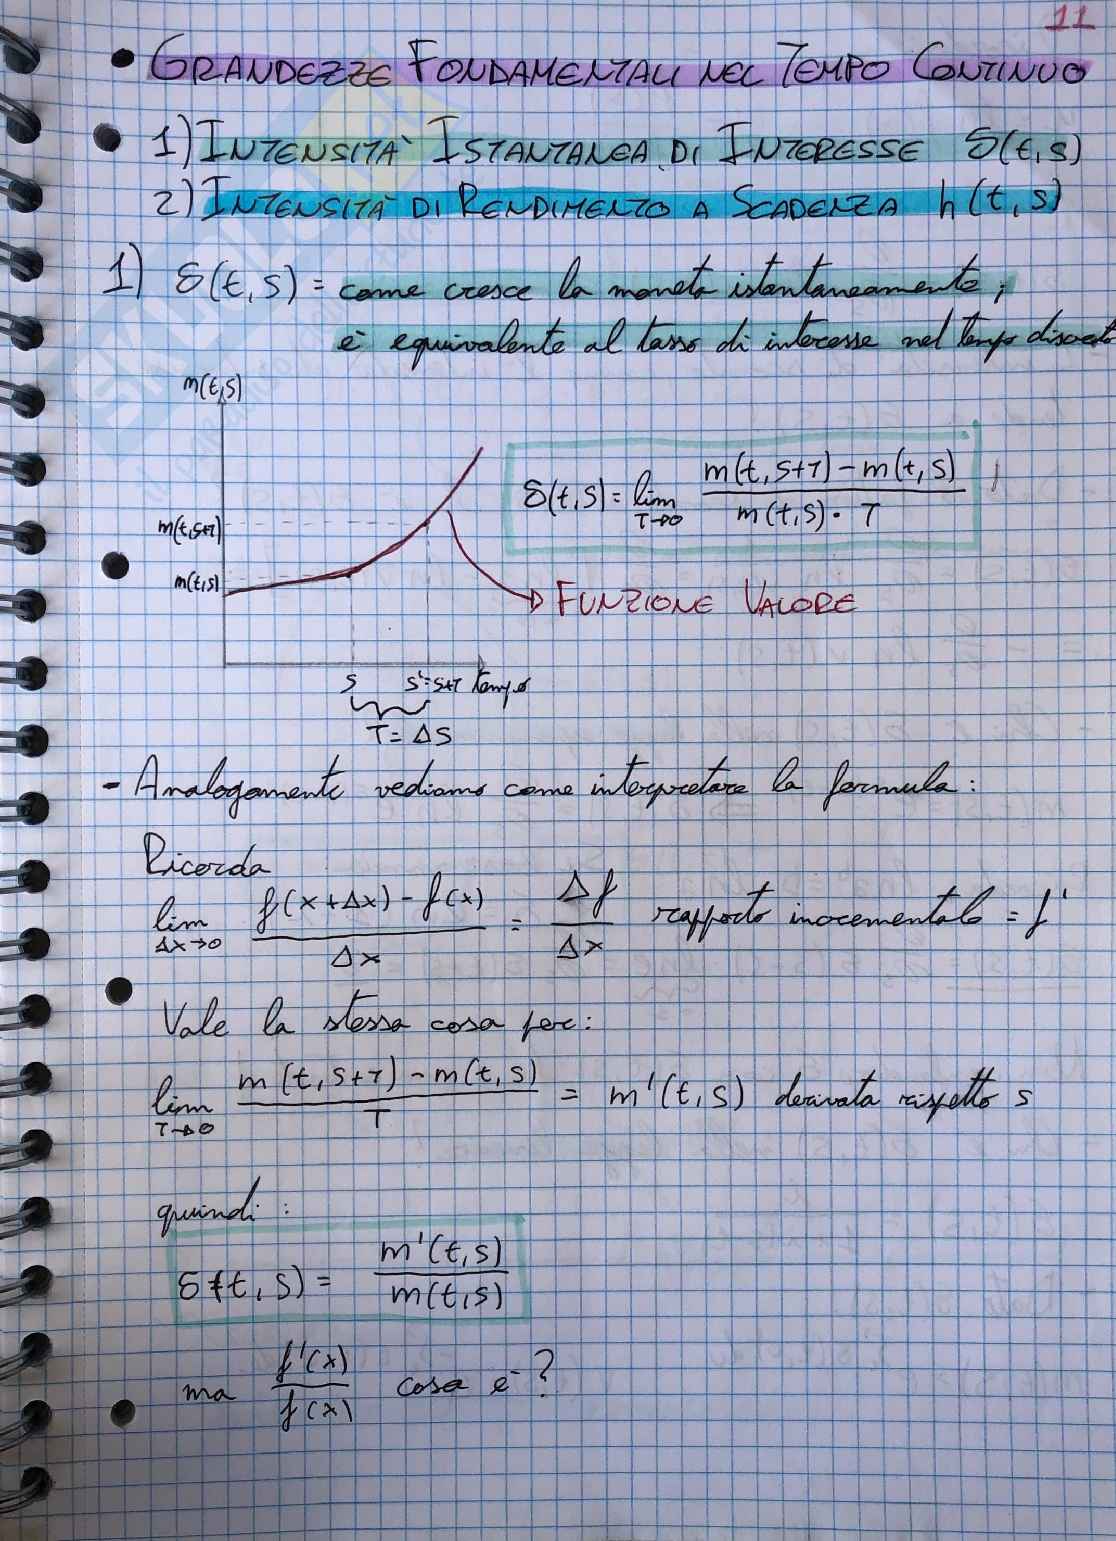 11
• GRANDEZZE FONDAMENTALI NEL TEMPO CONTINUO
1) INTENSITA' ISTANTANEA DI INTERESSE δ(t,s)
2) INTENSITA' DI RENDIMENTO A SCADENZA h(t,s)
1) δ(t,s) = come cresce la moneta istantaneamente,
è equivalente al tasso di interesse nel tempo discreto
m(t,s)
δ(t,s) = lim T→0 m(t,s+T) - m(t,s) / m(t,s) · T
m(t,s+T)
m(t,s)
→ FUNZIONE VALORE
s s'=s+T tempo
T = Δs
- Analogamente vediamo come interpretare la formula:
Ricorda
lim Δx→0 f(x+Δx) - f(x) / Δx = Δf / Δx rapporto incrementale = f'
Vale la stessa cosa per:
lim T→0 m(t,s+T) - m(t,s) / T = m'(t,s) derivata rispetto s
quindi:
δ(t,s) = m'(t,s) / m(t,s)
ma f'(x) / f(x) cosa è?
SKUOLA